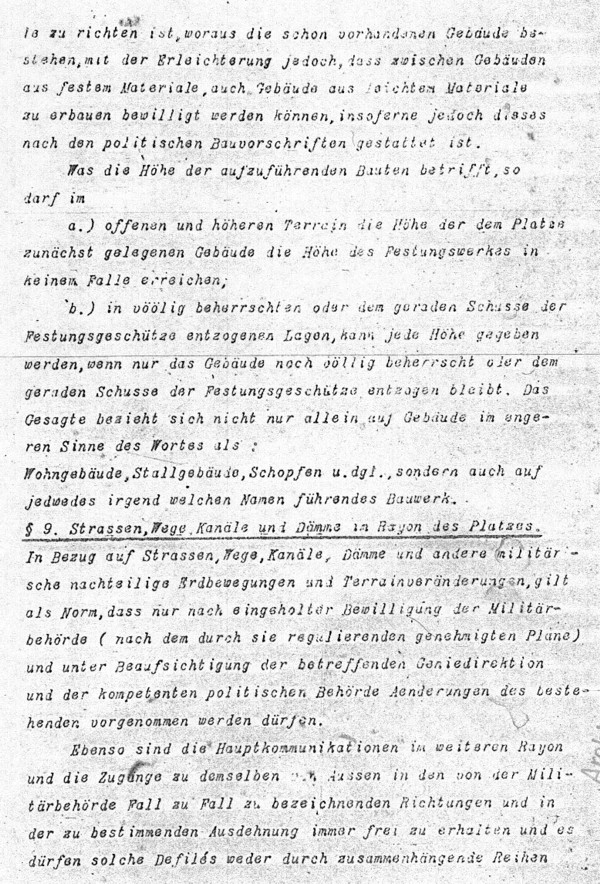 le zu richten ist,woraus die schon vorhandenen Gebäude be-
stehen,mit der Erleichterung jedoch,dass zwischen Gebäuden
aus festem Materiale,auch Gebäude aus leichtem Materiale
zu erbauen bewilligt werden können,insoferne jedoch dieses
nach den politischen Bauvorschriften gestattet ist.
Was die Höhe der aufzuführenden Bauten betrifft,so
darf im
a.) offenen und höheren Terrain die Höhe der dem Platze
zunächst gelegenen Gebäude die Höhe des Festungswerkes in
keinem Falle erreichen;
b.) in vöölig beherrschten oder dem geraden Schusse der
Festungsgeschütze entzogenen Lagen,kann jede Höhe gegeben
werden,wenn nur das Gebäude noch völlig beherrscht oder dem
geraden Schusse der Festungsgeschütze entzogen bleibt. Das
Gesagte bezieht sich nicht nur allein auf Gebäude im enge-
ren Sinne des Wortes als :
Wohngebäude,Stallgebäude,Schopfen u.dgl.,sondern auch auf
jedwedes irgend welchen Namen führendes Bauwerk.
§ 9. Strassen,Wege,Kanäle und Dämme im Rayon des Platzes.
In Bezug auf Strassen,Wege,Kanäle, Dämme und andere militäri-
sche nachteilige Erdbewegungen und Terrainveränderungen,gilt
als Norm,dass nur nach eingeholter Bewilligung der Militär-
behörde ( nach dem durch sie regulierenden genehmigten Plane)
und unter Beaufsichtigung der betreffenden Geniedirektion
und der kompetenten politischen Behörde Aenderungen des beste-
henden vorgenommen werden dürfen.
Ebenso sind die Hauptkommunikationen im weiteren Rayon
und die Zugänge zu demselben von Aussen in den von der Mili-
tärbehörde Fall zu Fall zu bezeichnenden Richtungen und in
der zu bestimmenden Ausdehnung immer frei zu erhalten und es
dürfen solche Defilés weder durch zusammenhängende Reihen